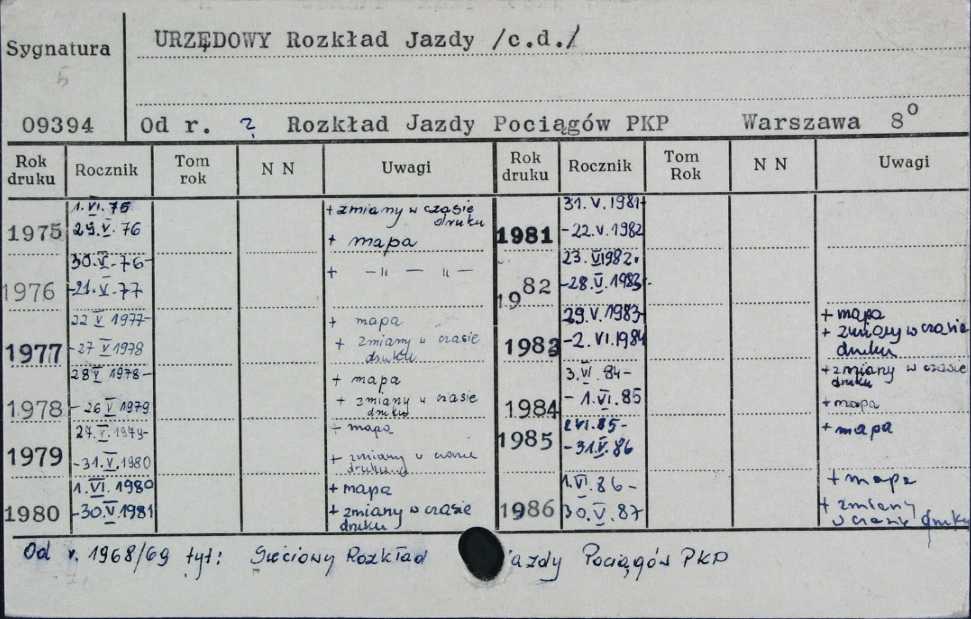 Sygnatura
URZĘDOWY Rozkład Jazdy /c.d./
09394
Od r. ? Rozkład Jazdy Pociągów PKP Warszawa 8°
Rok druku Rocznik Tom rok N N Uwagi Rok druku Rocznik Tom Rok N N Uwagi
1975 1.VI.75 29.V.76 + zmiany w czasie druku + mapa
1976 30.V.76- -21.V.77 + -"- -"-
1977 22 V 1977- -27 V 1978 + mapa + zmiany w czasie druku
1978 28 V 1978- -26 V 1979 + mapa + zmiany w czasie druku
1979 27.V.1979- -31.V.1980 + mapa + zmiany w czasie druku
1980 1.VI.1980 -30.V.1981 + mapa + zmiany w czasie druku
1981 31.V.1981- -22.V.1982
1982 23.V.1982. -28.V.1983.
1983 29.V.1983- -2.VI.1984 + mapa + zmiany w czasie druku
1984 3.VI.84- - 1.VI.85 + zmiany w czasie druku + mapa
1985 2VI.85- -31.V.86 + mapa
1986 1.VI.86- 30.V.87 + mapa + zmiany w czasie druku
Od r. 1968/69 tyt: Sieciowy Rozkład jazdy Pociągów PKP